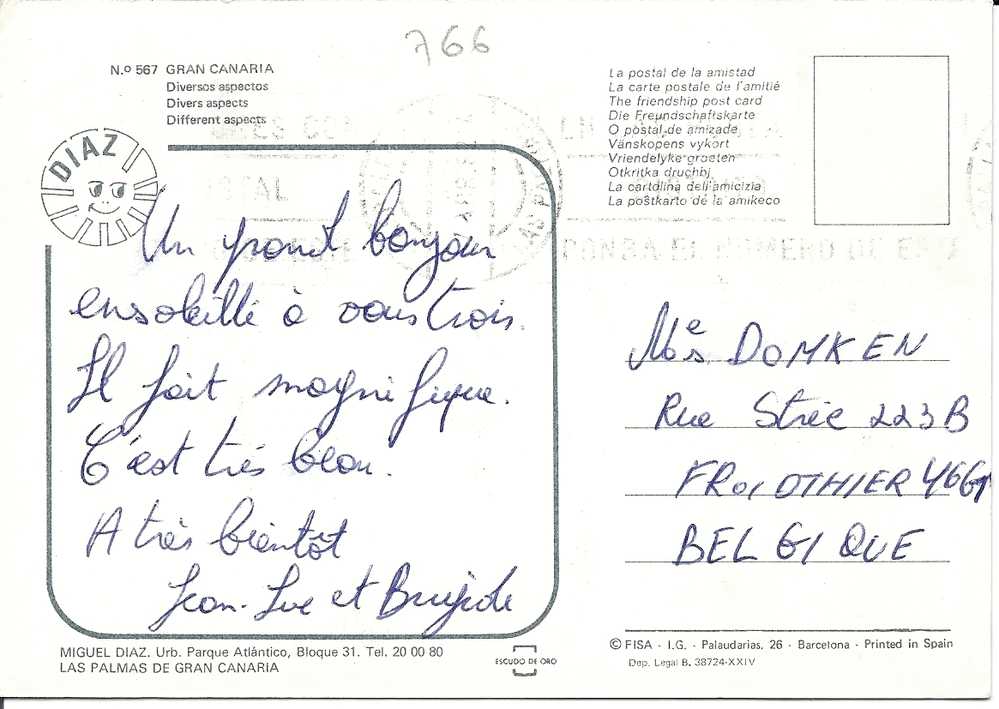 766
N.o 567 GRAN CANARIA
Diversos aspectos
Divers aspects
Different aspects
DIAZ
Un grand bonjour
ensoleillé à vous trois.
Il fait magnifique.
C'est très beau.
A très bientôt
Jean-Luc et Brigide
MIGUEL DIAZ. Urb. Parque Atlântico, Bloque 31. Tel. 20 00 80
LAS PALMAS DE GRAN CANARIA
ESCUDO DE ORO
La postal de la amistad
La carte postale de l'amitié
The friendship post card
Die Freundschaftskarte
O postal de amizade
Vänskopens vykort
Vriendelyke groeten
Otkritka druchbj
La cartolina dell'amicizia
La poŝtkarto de la amikeco
DOMKEN
Rue Strée 223B
4661
BELGIQUE
© FISA - I.G. - Palaudarias, 26 - Barcelona - Printed in Spain
Dep. Legal B. 38724-XXIV